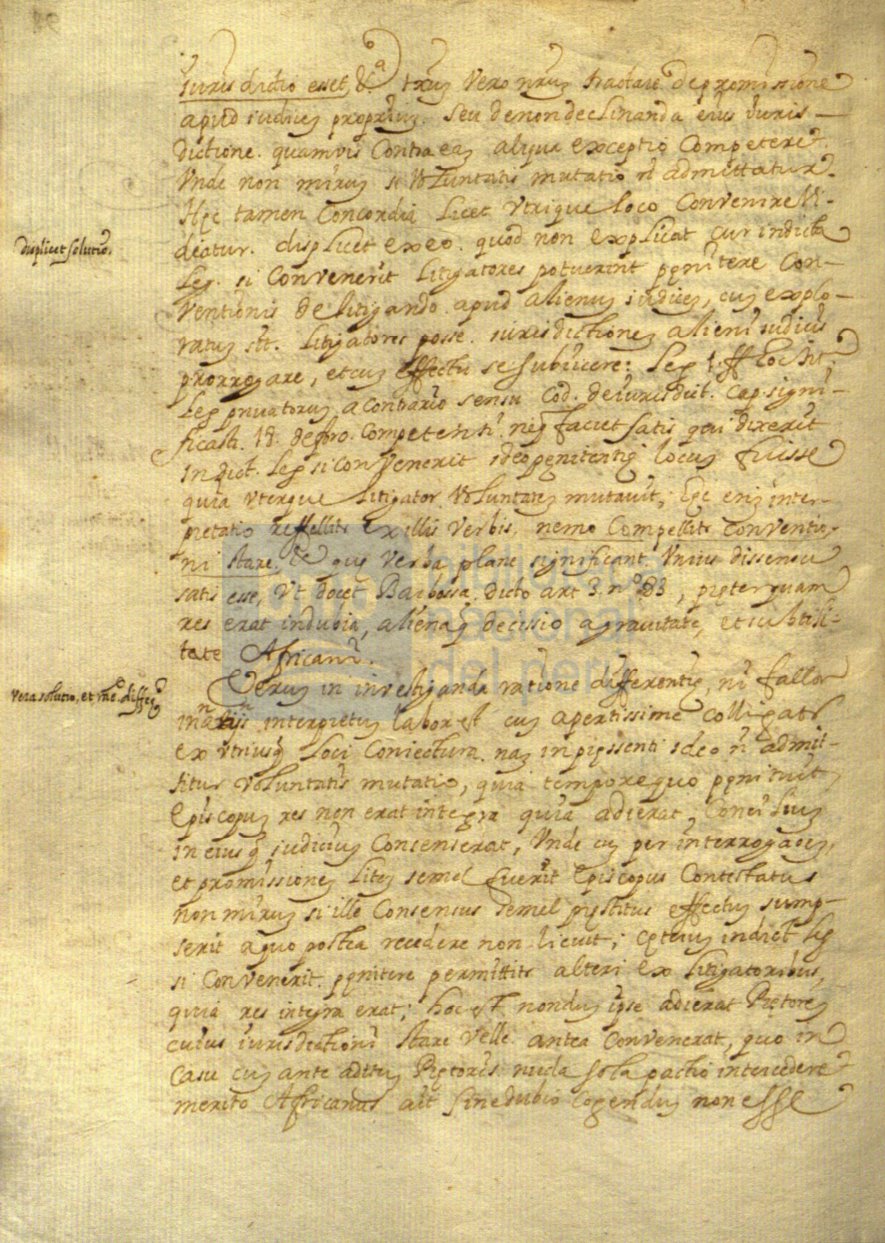 iurisdictio esset, &ª txuꝫ vero nruꝫ tractare de promissione
apud iudiceꝫ propriuꝫ. seu de non declinanda eius iuris-
dictione. quamvis contra eaꝫ aliqua exceptio competeret.
Unde non miruꝫ si voluntatis mutatio ñ admittatur.
Hęc tamen concordia licet utrique loco convenire vi-
Displicet solutio.
deatur. displicet ex eo. quod non explicat cur in dicta
Leg. si convenerit litigatores potuerint pęnitere con-
ventionis de litigando apud alienuꝫ iudiceꝫ, cuꝫ explo-
ratuꝫ sit. litigatores posse. iurisdictioneꝫ alieni iudicis
prorrogare, et cuꝫ effectu se subiicere: Leg 1. ff hoc tit
Leg privatoruꝫ a contrario sensu Cod. de iurisdict. cap. signi-
ficasti. 18. de foro. competenti. neꝗ faciet satis qui dixerit
in dict. Leg si convenerit ideo pęnitentię locuꝫ fuisse
quia uterque litigator voluntateꝫ mutavit, Hęc eniꝫ inter-
pretatio reffellitr ex illis verbis, nemo compellitr conventio-
ni stare. &ª quę verba plane significant. Unius dissensu
satis esse, ut docet Barbossa dicto art 3. nº 83, pręterquam
res erat indubia, alienaꝗ decisio a gravitate, et subtili-
tate Africani.
Vera solutio, et rñe differę
Verum in investiganda ratione differentię, ni fallor
inanis interpretum labor est cuꝫ apertissime colligatr
ex utriusꝗ loci coniectura. naꝫ in pręssenti ideo ñ admit-
titur voluntatis mutatio, quia tempore quo pęnituit
Episcopus res non erat integra quia adierat, conciliuꝫ
in eiusꝗ iudiciuꝫ consenserat, Unde cuꝫ per interrogaoeꝫ,
et promissioneꝫ liteꝫ semel fuerit Episcopus contestatus
non miruꝫ si ille consensus semel pręstitus effectuꝫ sump-
serit a quo postea recedere non licuit; cęteruꝫ in dict. leg
si convenerit. pęnitere permittitr alteri ex litigatoribus,
quia res integra erat; hoc est nonduꝫ ipse adierat Pretoreꝫ
cuius iurisdictioni stare velle. antea convenerat, quo in
casu cuꝫ ante adituꝫ Pretoris nuda sola pactio intercederet
merito Africanus ait sine dubio cogenduꝫ non esse
biblioteca
nacional
del perú